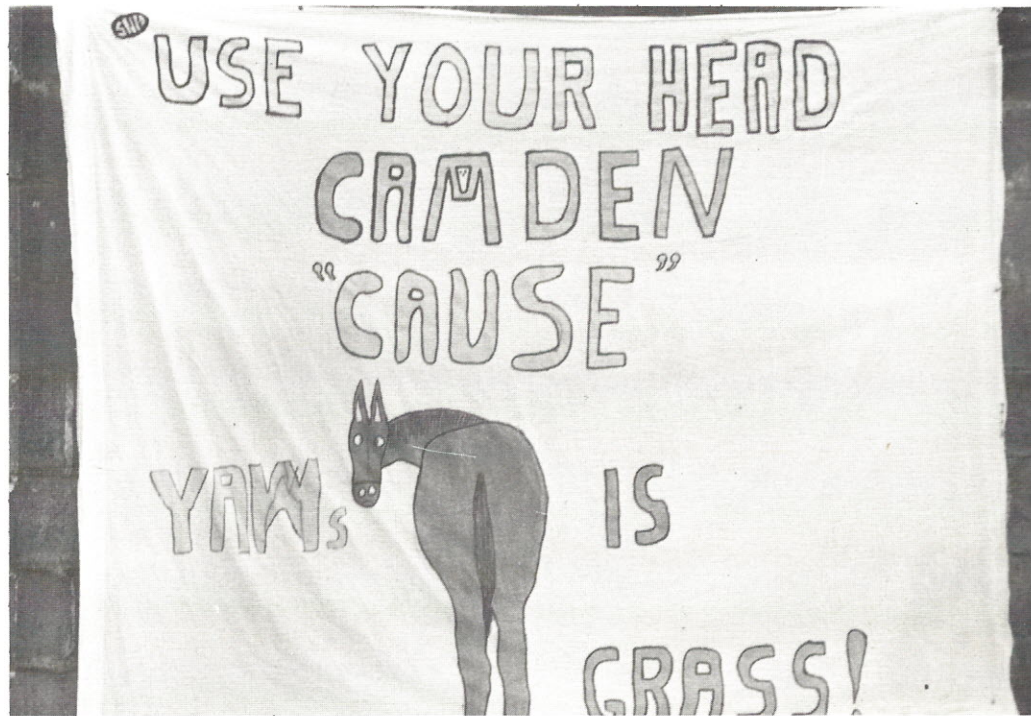 USE YOUR HEAD
CAMDEN
"CAUSE"
YAWs IS
GRASS!